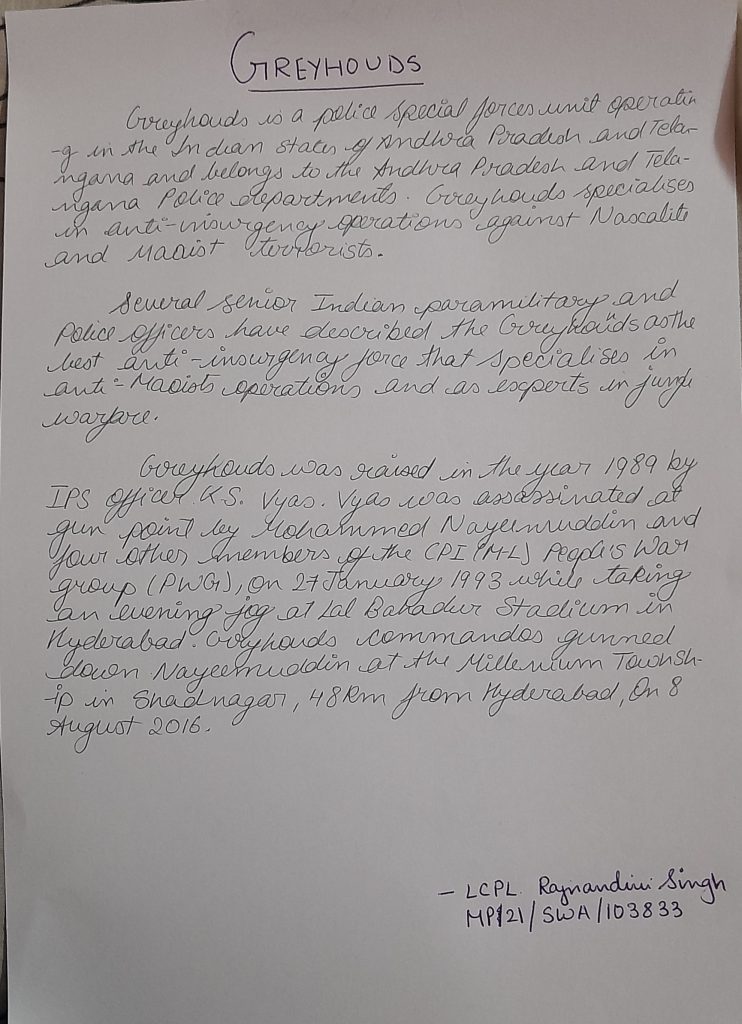 GREYHOUDS
Greyhouds is a police special forces unit operatin
-g in the Indian states of Andhra Pradesh and Tela-
ngana and belongs to the Andhra Pradesh and Tela-
ngana Police departments. Greyhouds specialises
in anti-insurgency operations against Naxalite
and Maoist terrorists.
Several senior Indian paramilitary and
Police officers have described the Greyhouds as the
best anti-insurgency force that specialises in
anti-Maoists operations and as experts in jungle
warfare.
Greyhouds was raised in the year 1989 by
IPS officer K.S. Vyas. Vyas was assassinated at
gun point by Mohammed Nayeemuddin and
four other members of the CPI (ML) People's War
group (PWG), on 27 January 1993 while taking
an evening jog at Lal Bahadur Stadium in
Hyderabad. Greyhouds commandos gunned
down Nayeemuddin at the Millenium Townsh-
-ip in Shadnagar, 48km from Hyderabad, On 8
August 2016.
- LCPL Rajnandini Singh
MP/21/SWA/103833